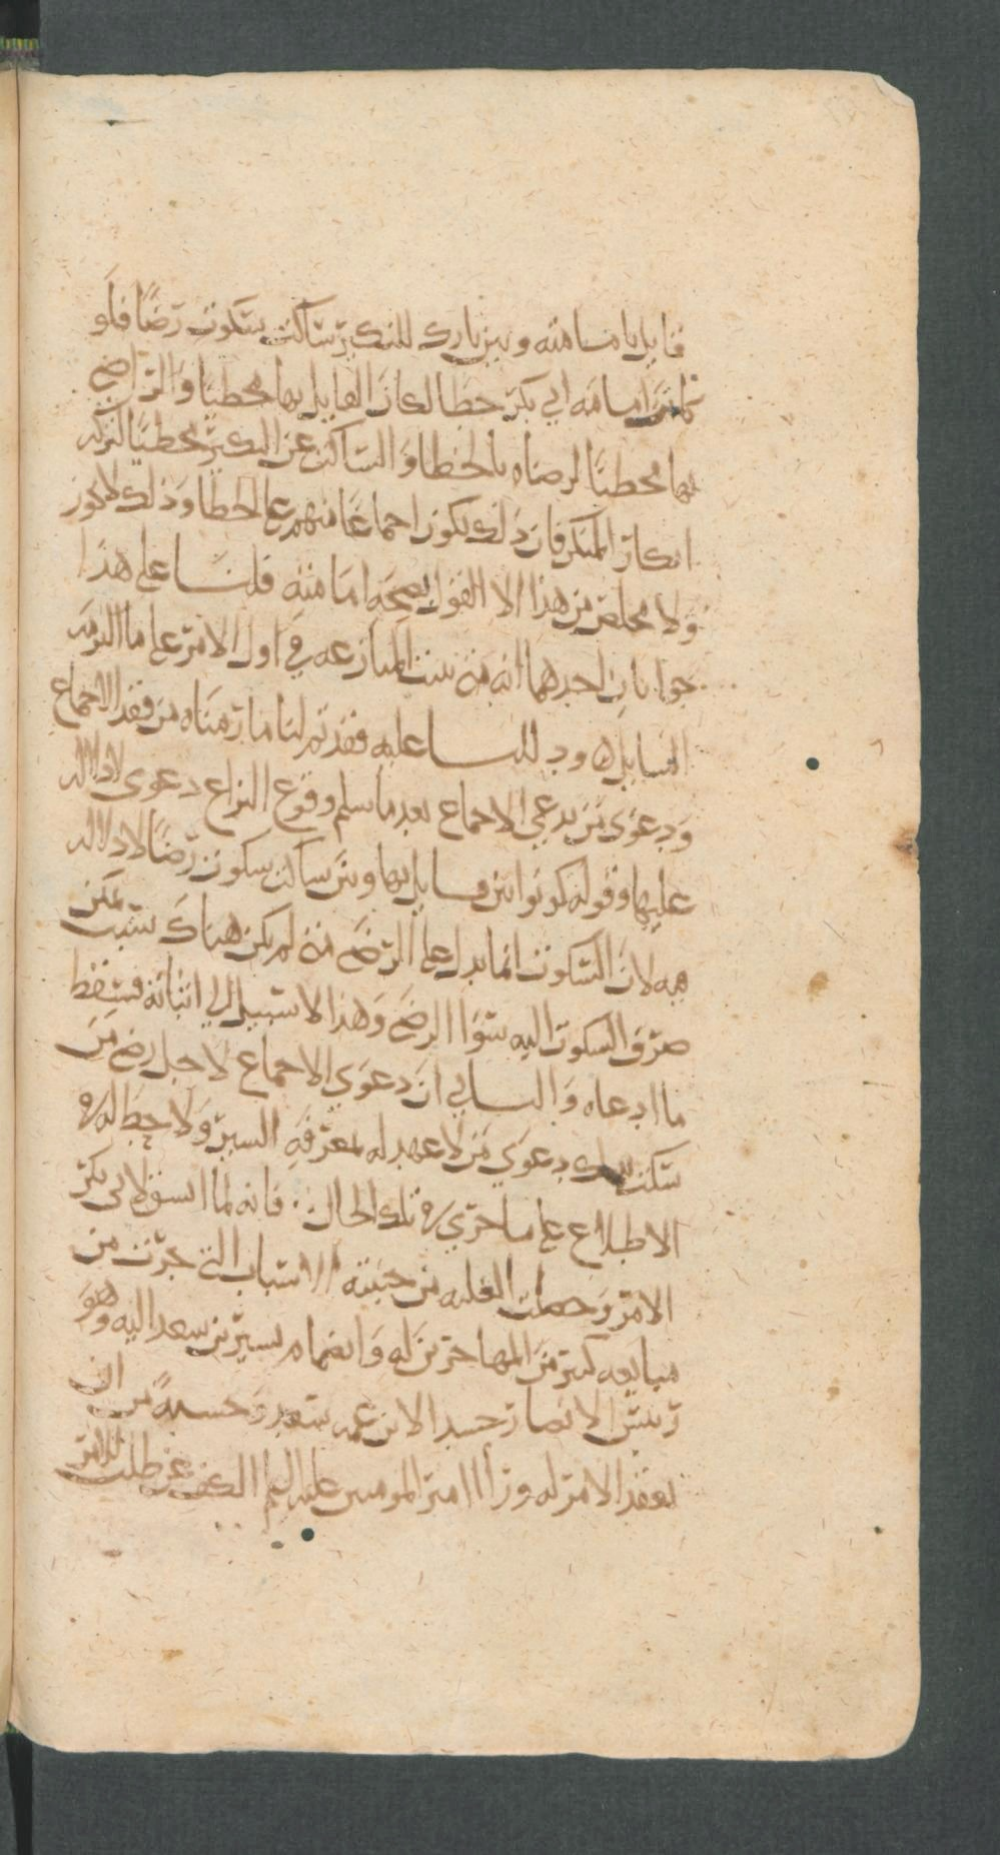 قايل بامامته وبين تارك للنكير ساكت سكوت رضًا فلو
كانت امامه ابي بكر خطا لكان القايل بها مخطيا والراضي
بها مخطيًا لرضاه بالخطا والساكت عن النكير مخطيًا لتركه
انكار المنكر فان ذلك يكون اجماعًا منهم على الخطا وذلك لا يجوز
ولا مخلص من هذا الا القول بصحه امامته قلنا على هذا
جوابان احدهما انه متى ثبت المنازعه في اول الامر على ما التزمه
السايل ودللنا عليه فقد تم لنا ما رمناه من فقد الاجماع
ودعوى من يدعي الاجماع بعد ما سلم وقوع النزاع دعوى لا دلاله
عليها وقوله كونوا بين قايل بها وبين ساكت سكوت رضًا لا دلاله
فيه لان السكوت انما يدل على الرضى متى لم يكن هناك سبب يمكن
صرف السكوت اليه سوا الرضى وهذا لا سبيل الى اثباته فسقط
ما ادعاه والثاني ان دعوى الاجماع لاجل رضى من
سكت دعوى من لا عهد له بمعرفه السير ولا حظ له في
الاطلاع على ما جرى في تلك الحال فانه لما اتسق لابي بكر
الامر وحصلت الغلبه من جنبته للاسباب التي جرت من
مبايعه كثير من المهاجرين له وانضمام بشير بن سعد اليه وهو
رييس الانصار حسدا لابن عمه سعد وخشيةً من ان
يعقد الامر له ورأا امير المومنين عليه السلم الكف عن طلب الامر